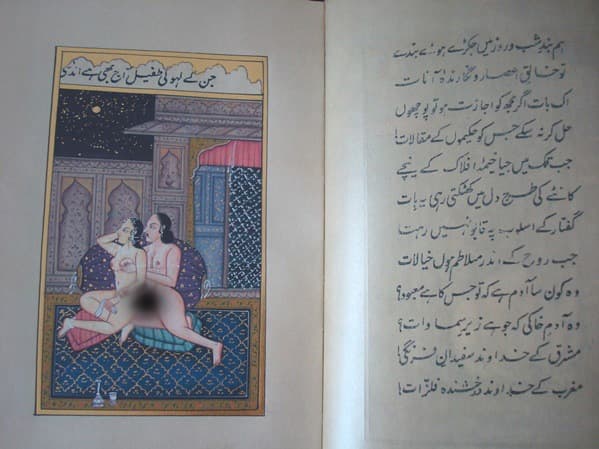 جن کے لہو کی طفیل آج بھی ہے
ہم بندِ شب و روز میں جکڑے ہوئے بندے
تو خالقِ اعصار و نگارندۂ آنات
اک بات اگر مجھ کو اجازت ہو تو پوچھوں
حل کر نہ سکے جس کو حکیموں کے مقالات!
جب تک میں جیا خیمۂ افلاک کے نیچے
کانٹے کی طرح دل میں کھٹکتی رہی یہ بات
گفتار کے اسلوب پہ قابو نہیں رہتا
جب روح کے اندر متلاطم ہوں خیالات
وہ کون سا آدم ہے کہ تو جس کا ہے معبود؟
وہ آدمِ خاکی کہ جو ہے زیرِ سماوات؟
مشرق کے خداوند سفیدانِ فرنگی!
مغرب کے خداوند درخشندہ فلزات!